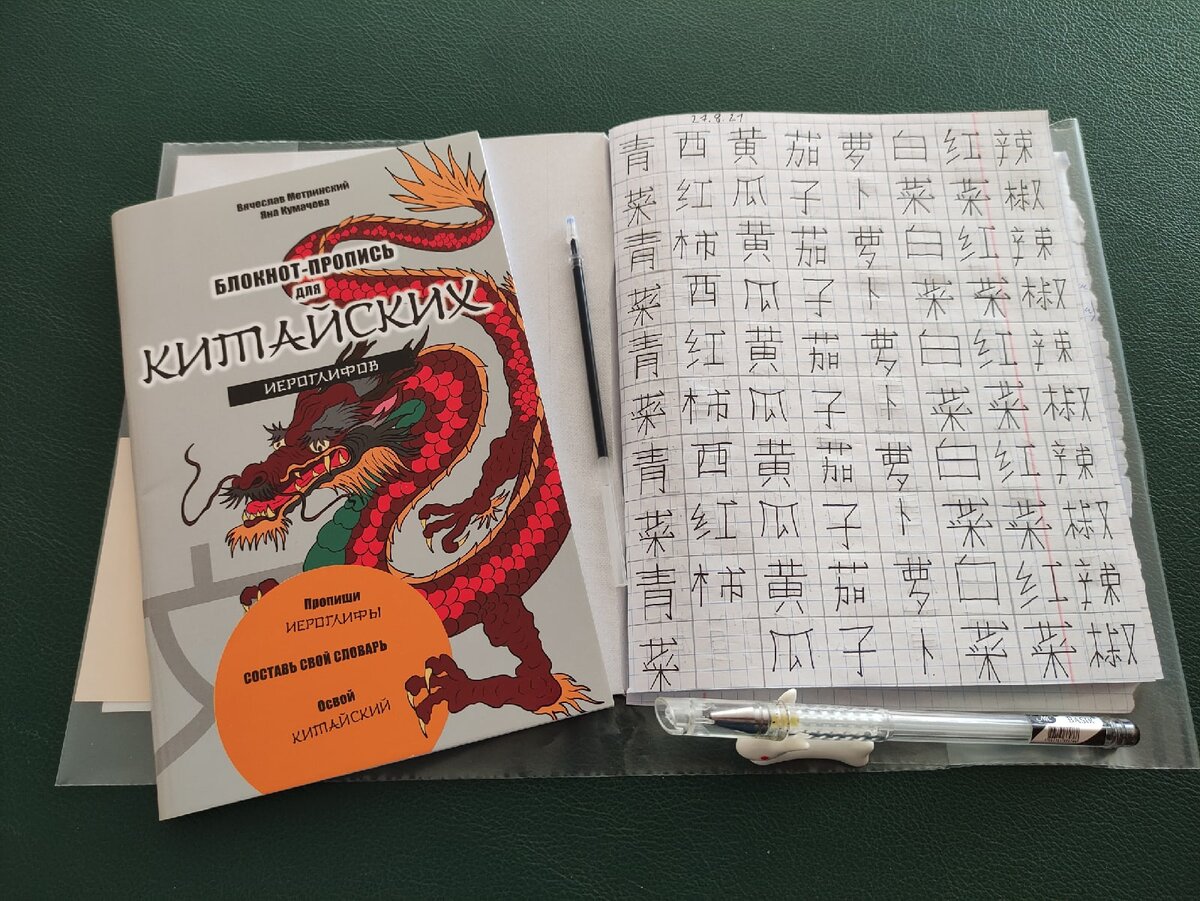 Вячеслав Метринский
Яна Кумачева
БЛОКНОТ-ПРОПИСЬ
для
КИТАЙСКИХ
ИЕРОГЛИФОВ
Пропиши
ИЕРОГЛИФЫ
СОСТАВЬ СВОЙ СЛОВАРЬ
Освой
КИТАЙСКИЙ
27.8.21
青 西 黄 茄 萝 白 红 辣
菜 红 瓜 子 卜 菜 菜 椒
青 柿 黄 茄 萝 白 红 辣
菜 西 瓜 子 卜 菜 菜 椒
青 红 黄 茄 萝 白 红 辣
菜 柿 瓜 子 卜 菜 菜 椒
青 西 黄 茄 萝 白 红 辣
菜 红 瓜 子 卜 菜 菜 椒
青 柿 黄 茄 萝 白 红 辣
菜 瓜 子 卜 菜 菜 椒